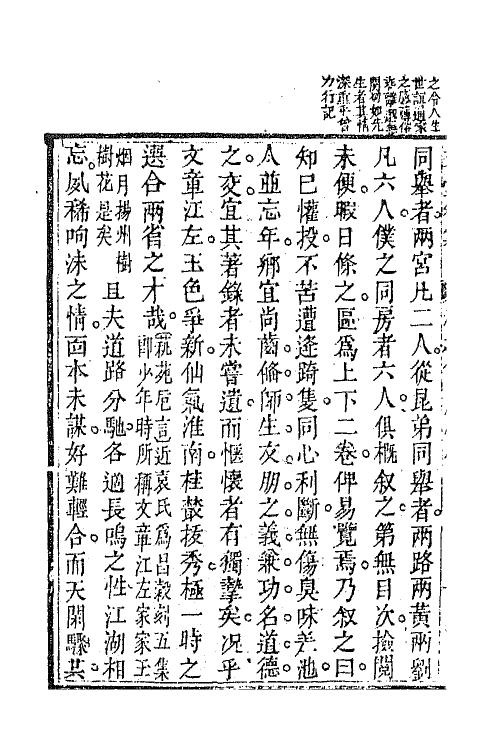 之令人生
世説通家
之感薄俗
生者其精
深重乎曾
力行記
同舉者兩宮凡二人從昆弟同舉者兩路兩黃兩劉
凡六人僕之同房者六人俱概叙之第無目次撿閲
未便暇日條之區爲上下二卷俾易覽焉乃叙之曰
知已懽投不苦遭逢踦隻同心利斷無傷臭味差池
人並忘年鄉宜尚齒脩師生友朋之義兼功名道德
之交宜其著錄者未嘗遺而惬懷者有獨摯矣况乎
文章江左玉色爭新仙氣淮南桂叢挨秀極一時之
選合兩省之才哉藝苑卮言近袁氏爲昌穀刻五集
即少年時所稱文章江左家家玉
烟月揚州樹
樹花是矣且夫道路分馳各適長嗚之性江湖相
忘夙稀呴沫之情面本未謀好難輕合而天閑驟其